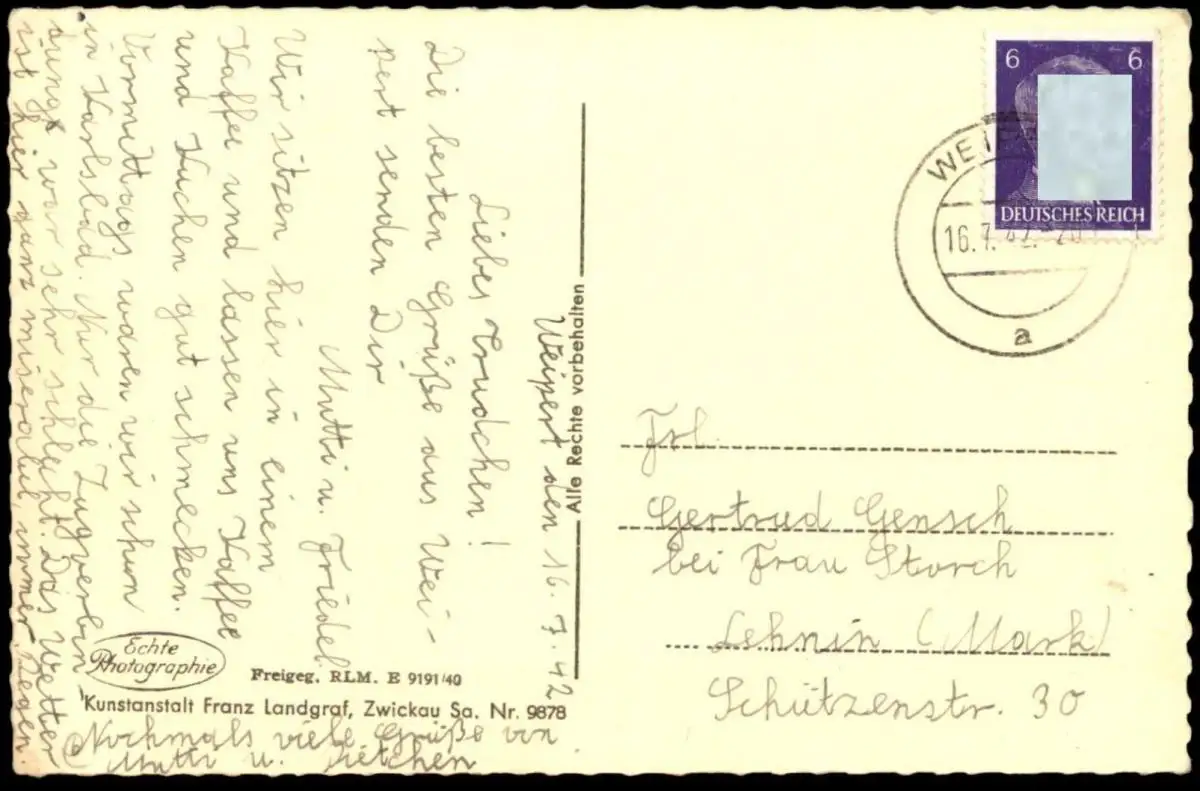 Weipert den 16.7.42.
Liebes Trudchen!
Die besten Grüße aus Wei-
pert senden Dir
Mutti u. Friedel.
Wir sitzen hier in einem
Kaffee und lassen uns Kaffee
und Kuchen gut schmecken.
Vormittags waren wir schon
in Karlsbad. Nur die Zugverbin
dung war sehr schlecht. Das Wetter
ist hier ganz miserabel, immer Regen.
Nochmals viele Grüße von
Mutti u.
Echte
Photographie
Freigeg. RLM. E 9191/40
Kunstanstalt Franz Landgraf, Zwickau Sa. Nr. 9878
Alle Rechte vorbehalten
6 6
DEUTSCHES REICH
16.7.42.-20
a
Frl.
Gertrud Gensch
bei Frau Storch
Lehnin (Mark)
Schützenstr. 30